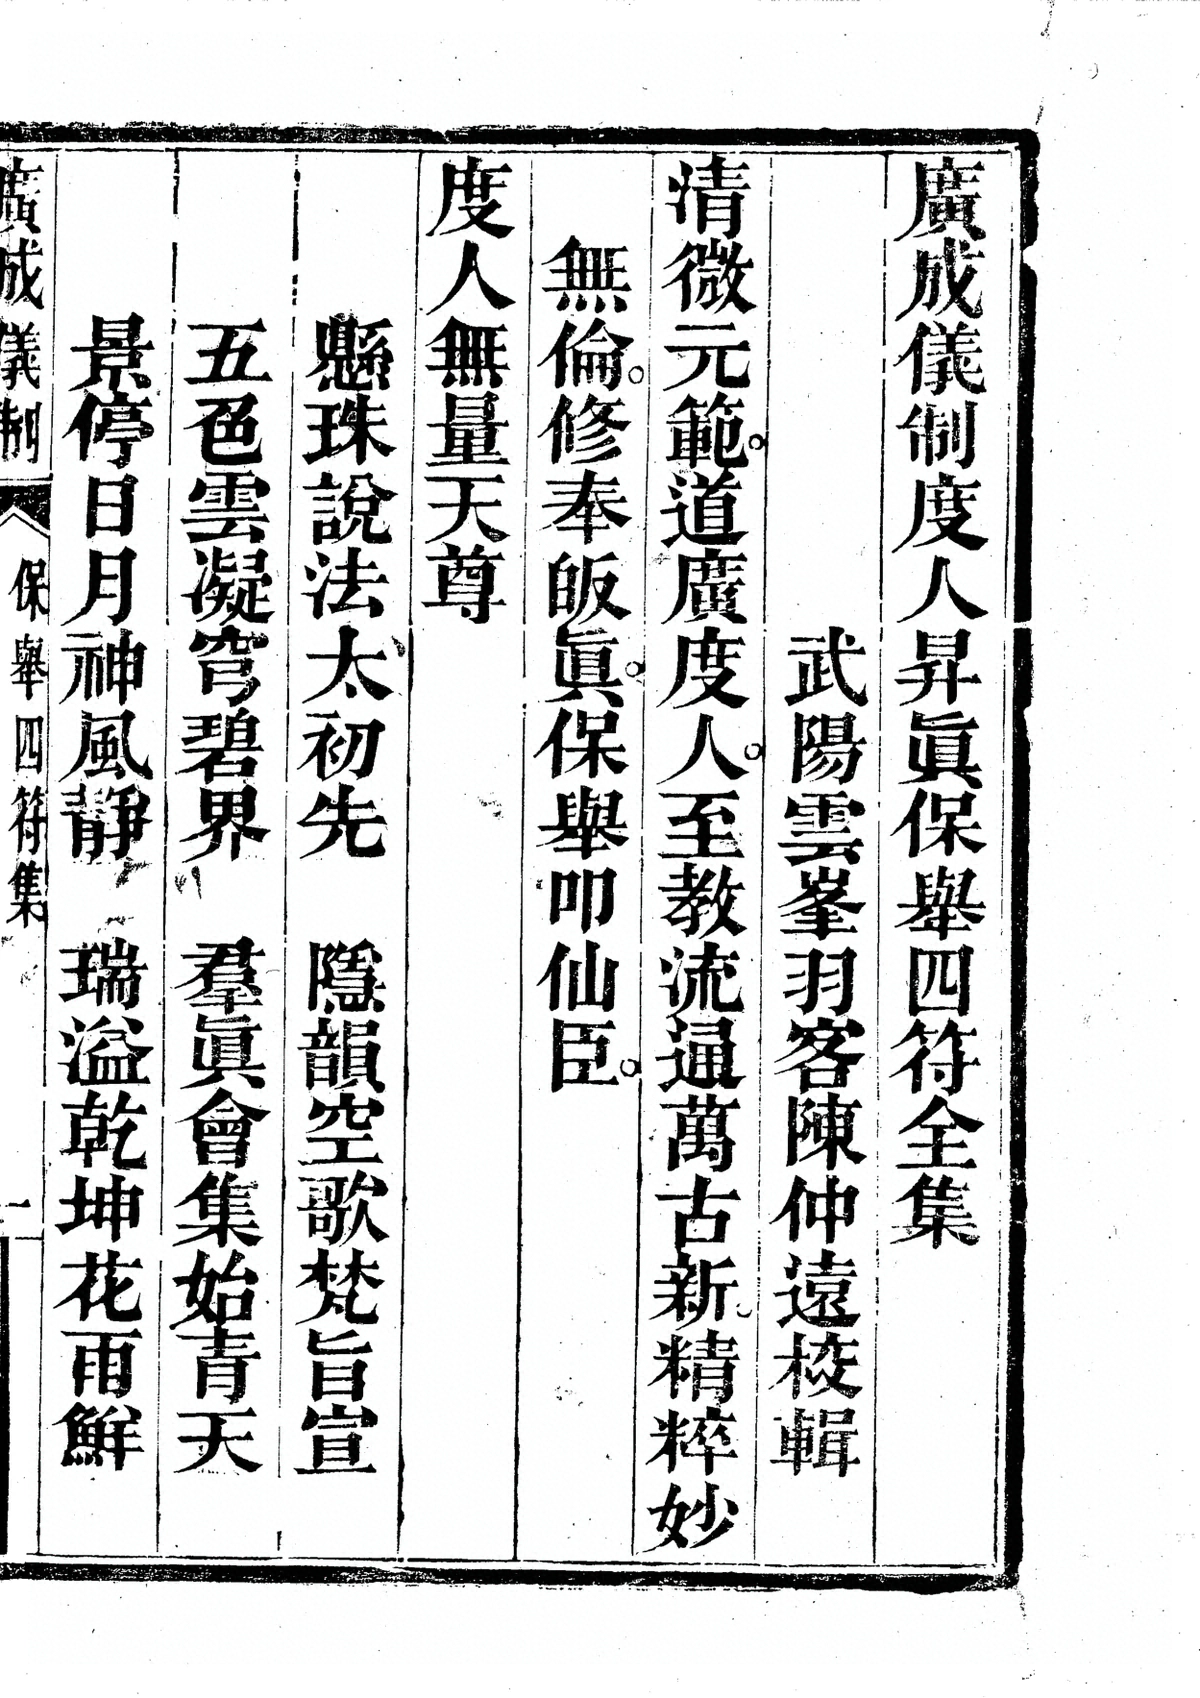 廣成儀制度人昇眞保舉四符全集
武陽雲峯羽客陳仲遠校輯
清微元範。道廣度人。至教流通萬古新。精粹妙
無倫。修奉皈眞。保舉叩仙臣。
度人無量天尊
懸珠說法太初先　隱韻空歌梵旨宣
五色雲凝穹碧界　羣眞會集始青天
景停日月神風靜　瑞溢乾坤花雨鮮
廣成儀制　保舉四符集　一